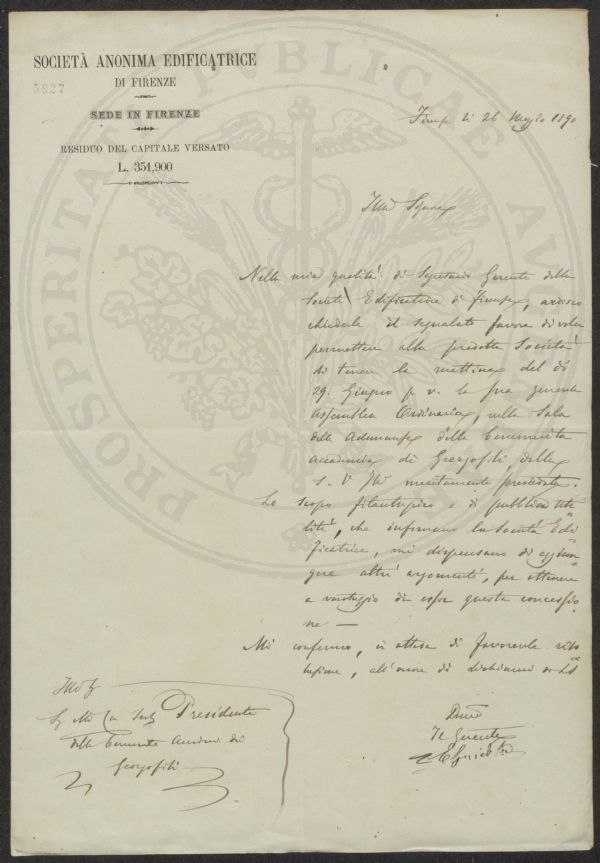 SOCIETÀ ANONIMA EDIFICATRICE
DI FIRENZE
5827
SEDE IN FIRENZE
RESIDUO DEL CAPITALE VERSATO
L. 351,900
PROSPERITATI PUBLICAE AUG
Firenze li 26 Maggio 1890
Illmo Signore
Nella mia qualità di Segretario Gerente della
Società Edificatrice di Firenze, ardisco
chiederle il segnalato favore di voler
permettere alla predetta Società
di tenere la mattina del dì
29. Giugno p. v. la sua generale
Assemblea Ordinaria, nella Sala
delle Adunanze della
Accademia di Georgofili, dalla
S. V. Illma meritamente presieduta.
Lo scopo filantropico e di pubblica uti=
lità, che informano la Società Edi=
ficatrice, mi dispensano di aggiun=
gere altri argomenti, per ottenere
a vantaggio di essa questa concessio=
ne —
Mi confermo, in attesa di favorevole riso=
luzione, all'onore di
Il Gerente
Illmo
Presidente
della Accademia dei
Georgofili